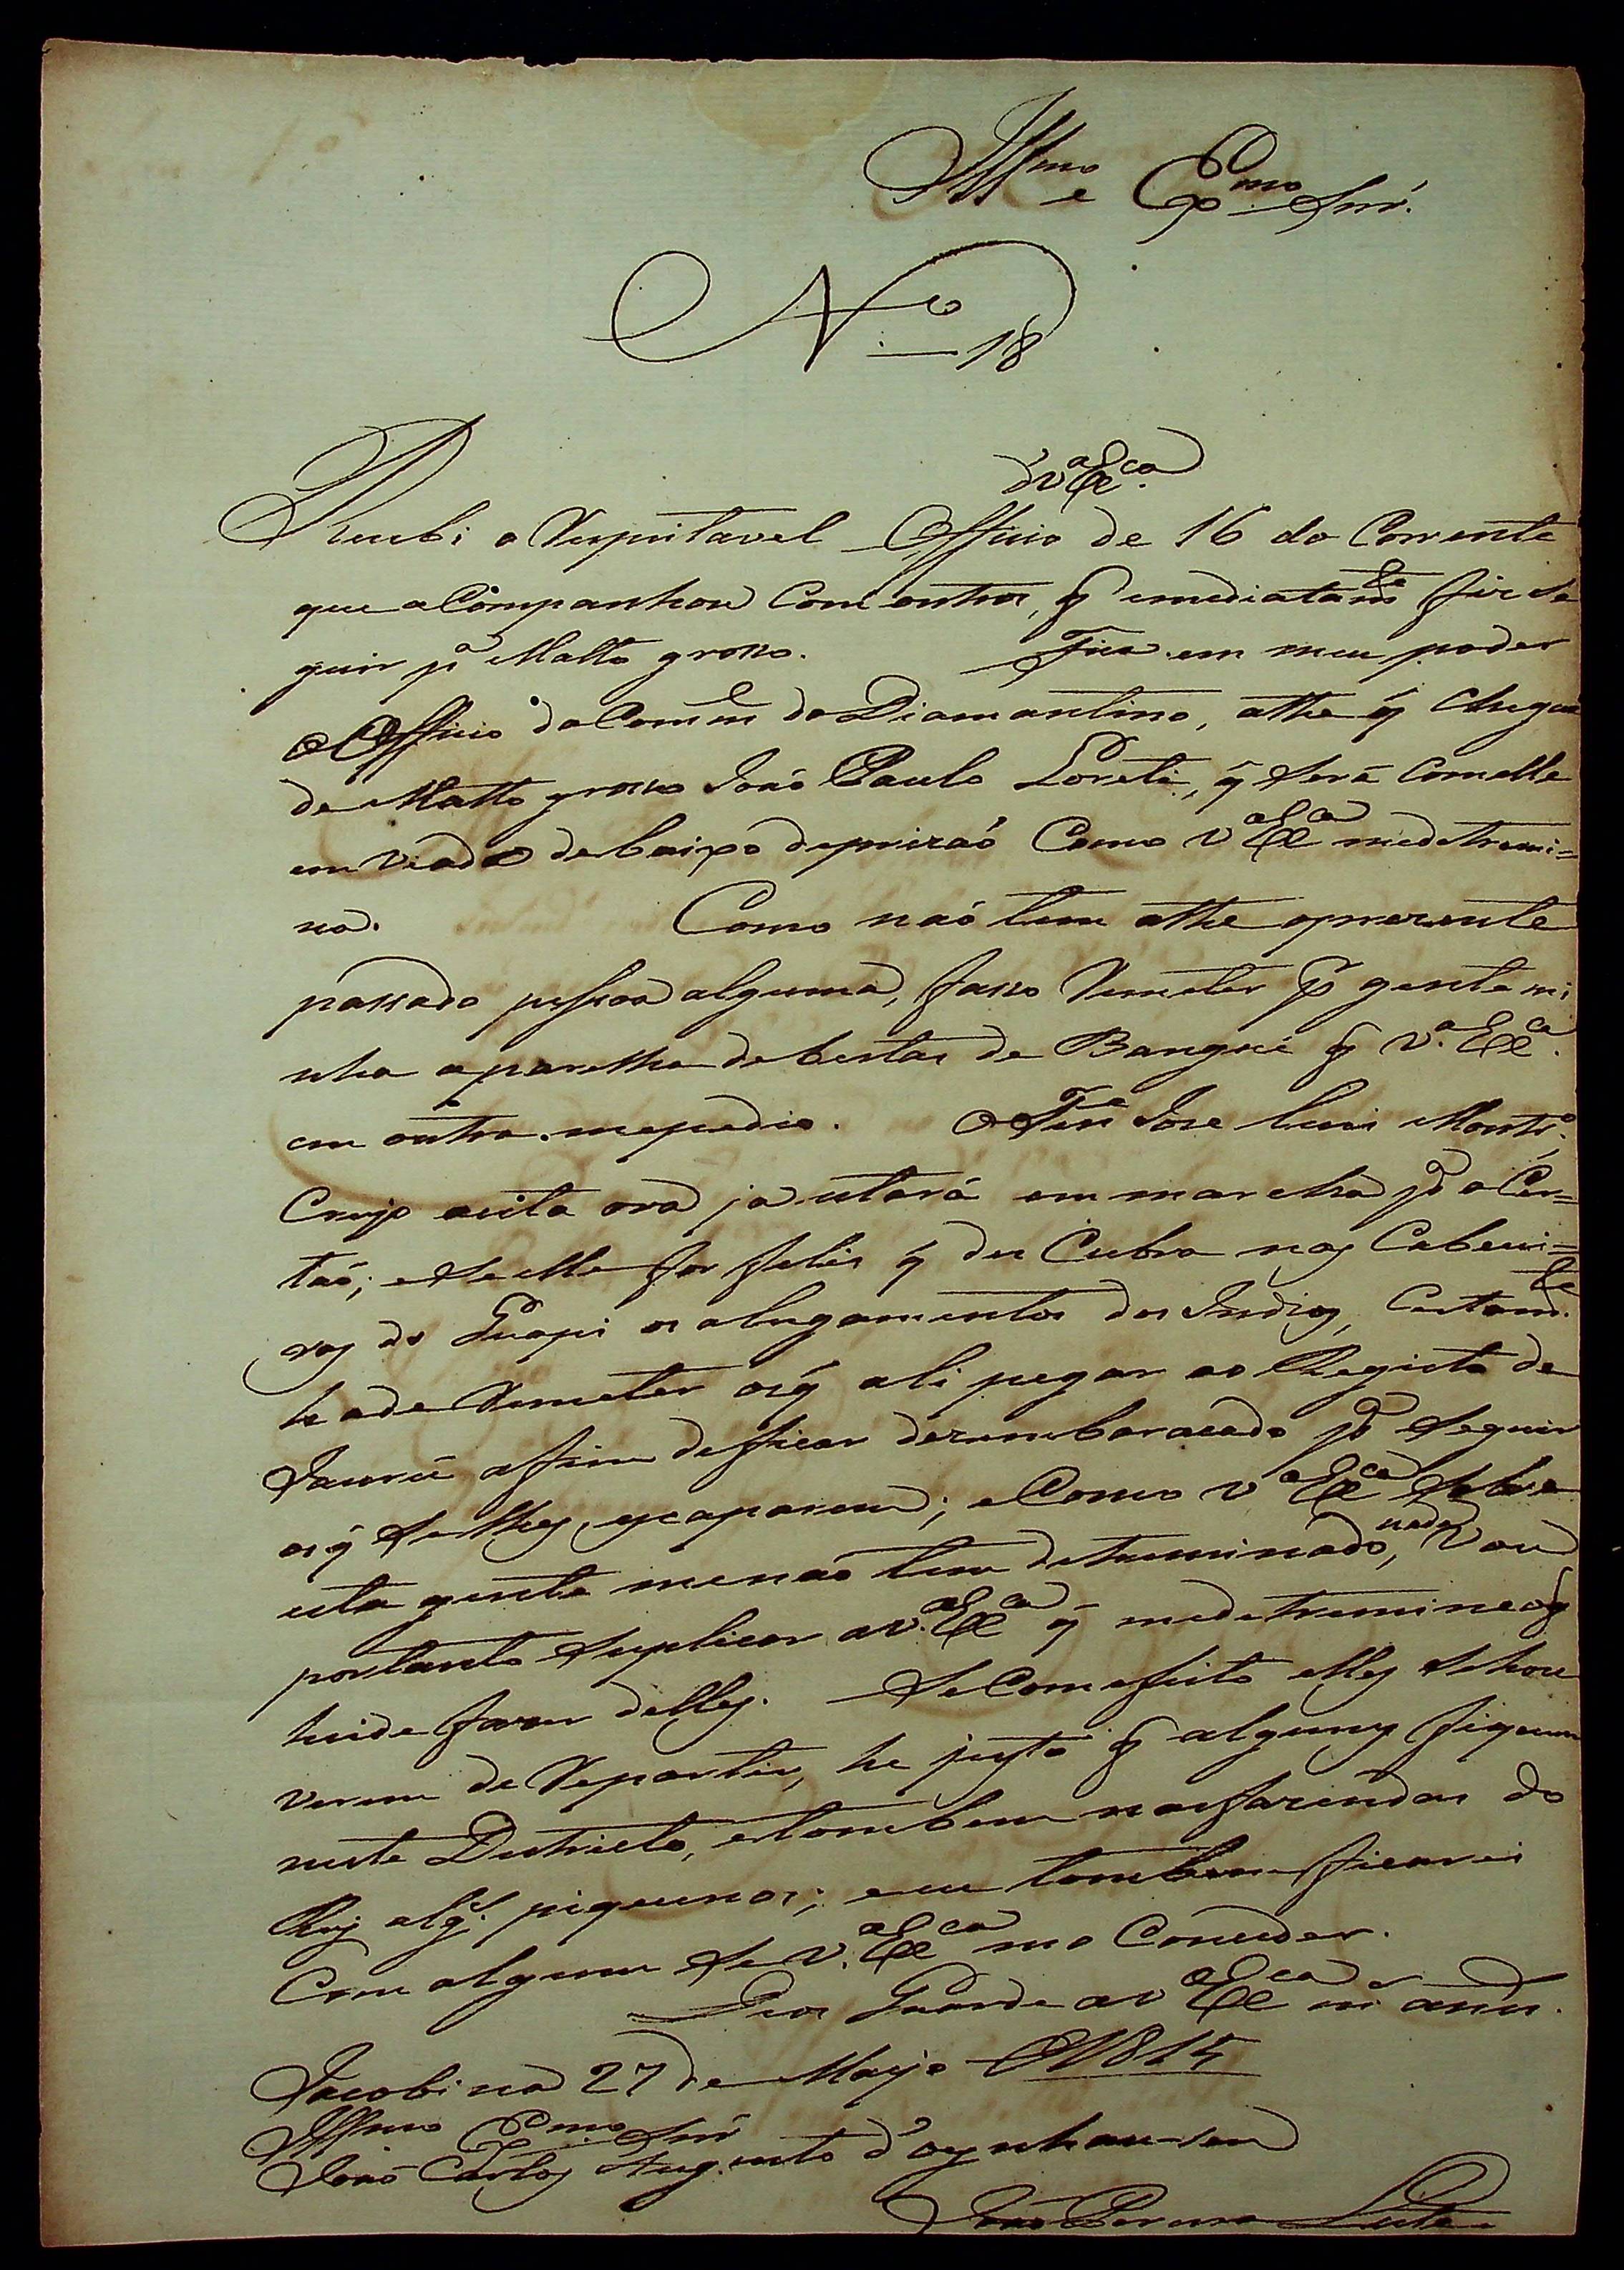 Illmo e Exmo Snr.
No 18
d'V.a Ex.ca
Recebi o Respeitavel Officio de 16 do Corrente
que aCompanhou Com outros, q imediatamte fis se
guir pa Matto groso. Fica em meu poder
o Officio do Comde do Diamantino, athe q Chegue
de Matto groso João Paulo Loreti, q Será Comelle
em viado debaixo deprizaó Como V.a Ex.ca medetremi=
na. Como naó tem athe oprezente
passado pessoa alguma, fasso Remeter por gente mi
nha aparelha debestas de Bangué q V.a Ex.ca
em outra mepedio. O Ten.e Joze Luis Montro.
Cujo aesta ora ja estará em marcha pa o Cer=
taó; eSeelle for felis q deu Cubra nas Cabecei=
ras do Guapi os alugamentos dos Indios, Certamte
hade Remeter osq ali pegar ao Registo de
Jaurú afim deficar dezembaracado pa Seguir
osq Selhes escaparem; eComo V.a Ex.ca Sobre
esta gente menaó tem detreminado nada, Vou
portanto Suplicar aV.a Ex.ca q medetremine oq
heide fazer delles. SeComefeito elles Sehou
verem de Repartir, he justo q alguns fiquem
neste Destricto, etombem nasfazendas do
Rey algs. piquenos; eeu tombem ficarei
Com algum Se V.a Ex.ca mo Conceder.
Deos Guarde aV.a Ex.ca ms. anns.
Jacobina 27 de Mayo D1815
Illmo Exmo Snr
Joaó Carlos Augusto d'oeynhausen
Joaó Pereira Leite